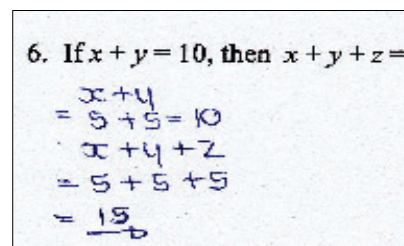 6. If x + y = 10, then x + y + z =
x+y
= 5 + 5 = 10
x + y + z
= 5 + 5 + 5
= 15